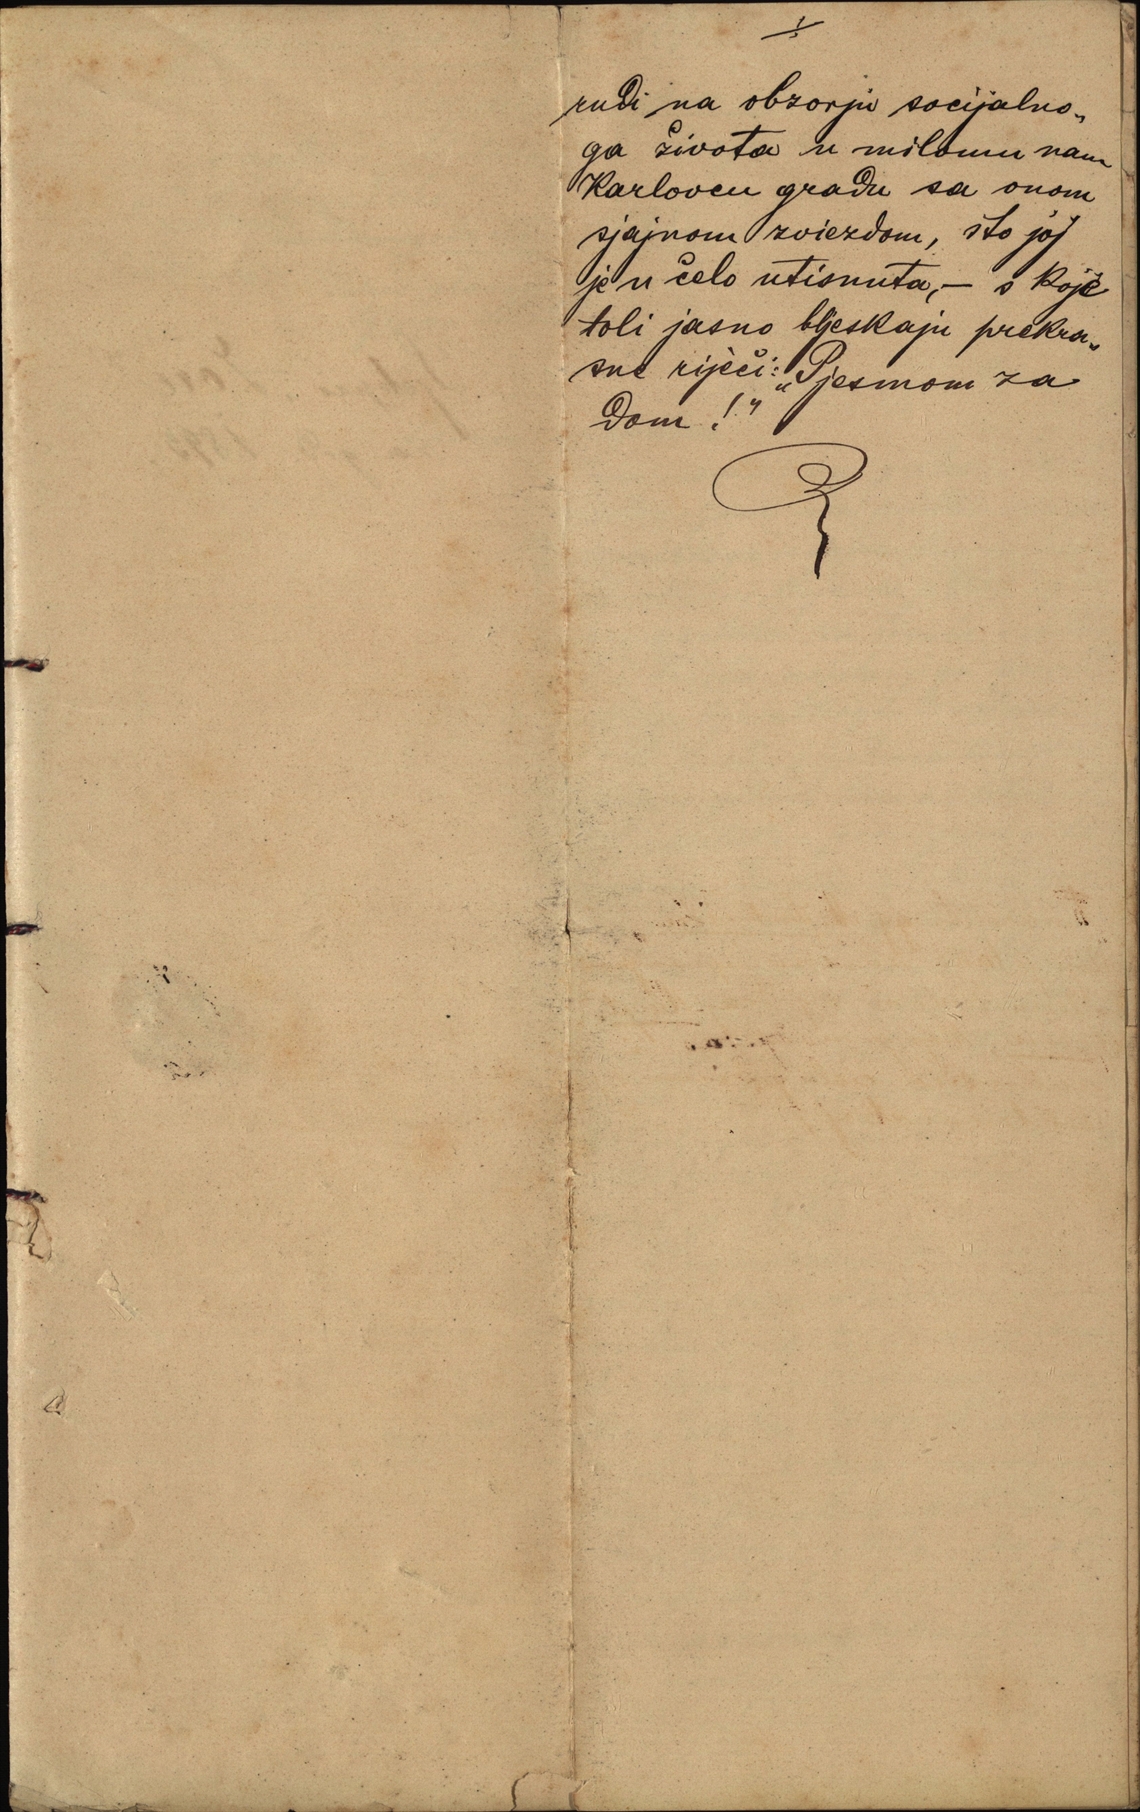 rudi na obzorju socijalno„
ga života u milomu nam
Karlovcu gradu sa onom
sjajnom zviezdom, što joj
je u čelo utisnuta, — s koje
toli jasno bljeskaju prekra„
sne riječi: „Pjesmom za
dom!"